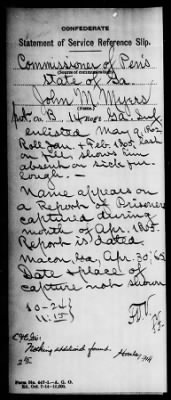 CONFEDERATE
Statement of Service Reference Slip.
Commissioner of Pens
(Source of communication)
State of Ga
John M. Myers
Co. B 14 Regt Ga. Inf
enlisted May 9, 1862
Roll Jan & Feb. 1865, last
on file shows him
absent on sick fur-
lough. —
Name appears on
a Report of Prisoners
captured during
month of Apr. 1865.
Report is dated
Macon, Ga, Apr. 30, 65.
Date & place of
capture not shown
10-24
11:15
Nothing additional found.
Form No. 447-1—A. G. O.